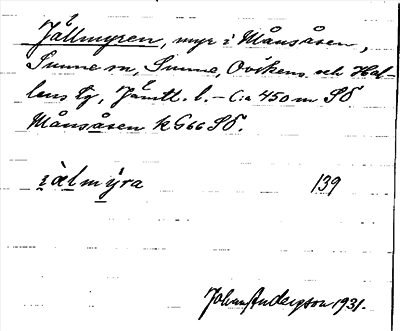 Jällmyren, myr i Månsåsen,
Sunne sn, Sunne, Ovikens och Hal-
lens tg, Jämtl. l. – C:a 450 m SO
Månsåsen k G66 SO.
139
Johan Anderson 1931.